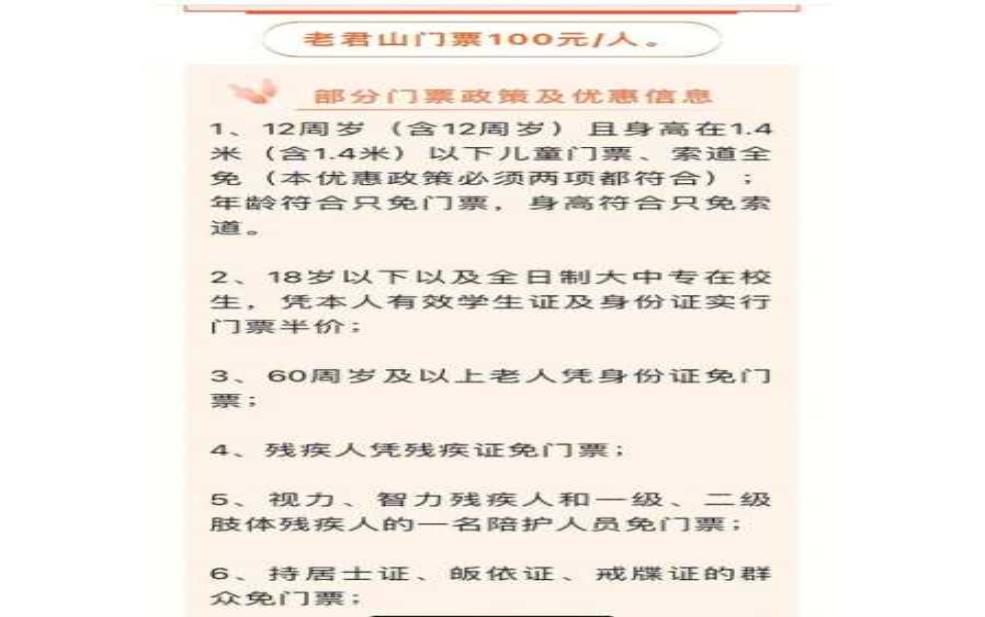 老君山门票100元/人。
部分门票政策及优惠信息
1、12周岁（含12周岁）且身高在1.4
米（含1.4米）以下儿童门票、索道全
免（本优惠政策必须两项都符合）；
年龄符合只免门票，身高符合只免索
道。
2、18岁以下以及全日制大中专在校
生，凭本人有效学生证及身份证实行
门票半价；
3、60周岁及以上老人凭身份证免门
票；
4、残疾人凭残疾证免门票；
5、视力、智力残疾人和一级、二级
肢体残疾人的一名陪护人员免门票；
6、持居士证、皈依证、戒牒证的群
众免门票；